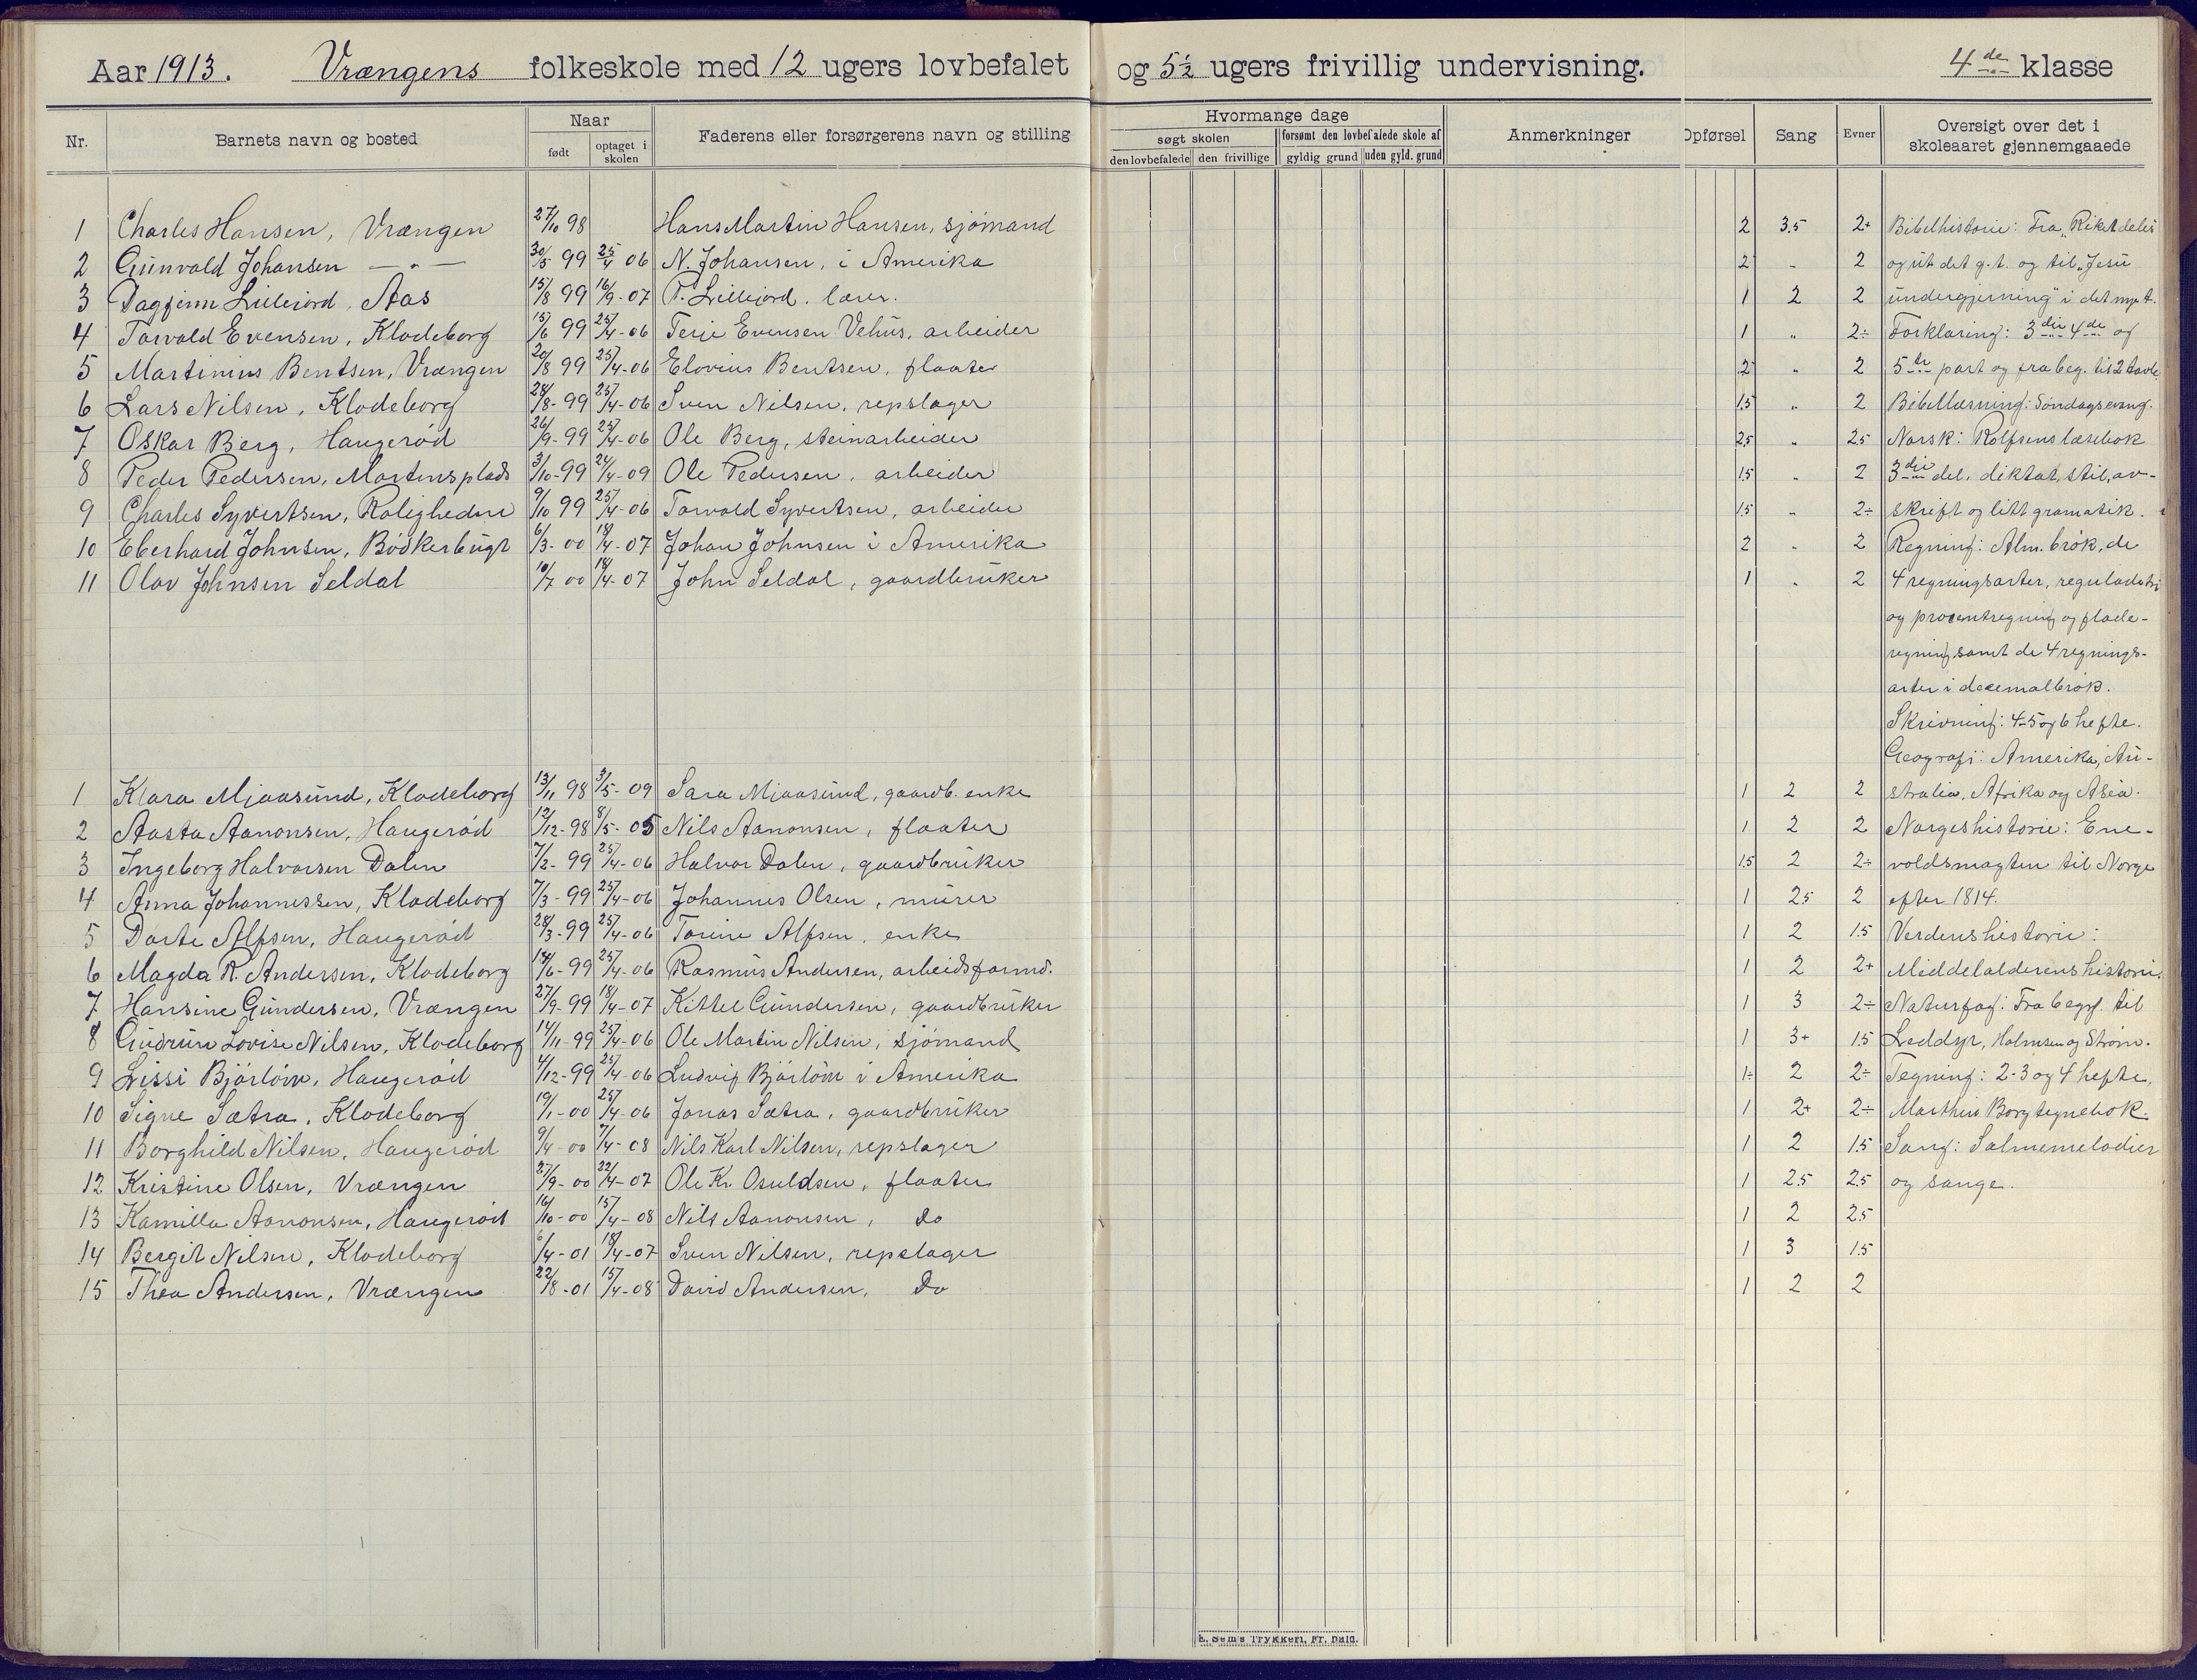 Aar 1913. Vrængens folkeskole med 12 ugers lovbefalet og 5½ ugers frivillig undervisning. 4de klasse
Nr. Barnets navn og bosted Naar Faderens eller forsørgerens navn og stilling
født optaget i skolen
Hvormange dage Anmerkninger Opførsel Sang Evner Oversigt over det i skoleaaret gjennemgaaede
søgt skolen forsømt den lovbefalede skole af
den lovbefalede den frivillige gyldig grund uden gyld. grund
1 Charles Hansen, Vrængen 27/10 98 Hans Martin Hansen, sjömand 2 3.5 2+ Bibelhistorie: Fra "Riket deles
2 Gunvald Johansen — " — 30/5 99 25/4 06 N. Johansen, i Amerika 2 " 2 og ut det g.t. og til "Jesu
3 Dagfinn Lilleiord, Aas 15/8 99 16/9-07 P. Lilleiord. lærer. 1 2 2 undergjerning" i det nye t.
4 Torvald Evensen, Klodeborg 15/6 99 25/4-06 Terje Evensen Vehus, arbeider 1 " 2÷ Forklaring: 3die 4de og
5 Martinius Bentsen, Vrængen 20/8 99 25/4-06 Elovius Bentsen, flaater 2 " 2 5te part og fra beg. til 2 tavle
6 Lars Nilsen, Klodeborg 28/8-99 25/4-06 Sven Nilsen, repslager 1.5 " 2 Bibellæsning: Søndagsevang.
7 Oskar Berg, Haugerød 26/9-99 25/4-06 Ole Berg, steinarbeider 2.5 " 2.5 Norsk: Rolfsens læsebok
8 Peder Pedersen, Mortensplads 3/10-99 24/4-09 Ole Pedersen, arbeider 1.5 " 2 3die del, diktat, stil, av-
9 Charles Syvertsen, Roligheden 9/10 99 25/4-06 Torvald Syvertsen, arbeider 1.5 " 2÷ skrift og litt gramatik.
10 Eberhard Johnsen, Bödkerbugt 6/3-00 18/4-07 Johan Johnsen i Amerika 2 " 2 Regning: Alm. brök, de
11 Olav Johnsen Seldal 10/7 00 18/4-07 John Seldal, gaardbruker 1 " 2 4 regningsarter, reguladetri
og procentregning og flade-
regning samt de 4 regnings-
arter i decemalbrök.
Skrivning: 4-5 og 6 hefte.
Geografi: Amerika, Au-
1 Klara Mjaasund, Klodeborg 13/11 98 3/5-09 Sara Mjaasund, gaardb. enke 1 2 2 stralia, Afrika og Asia.
2 Aasta Aanonsen, Haugerød 12/12-98 8/5-05 Nils Aanonsen, flaater 1 2 2 Norgeshistorie: Ene-
3 Ingeborg Halvorsen Dalen 7/2-99 25/4-06 Halvor Dalen, gaardbruker 1.5 2 2÷ voldsmagten til Norge
4 Anna Johannessen, Klodeborg 7/3-99 25/4-06 Johannes Olsen, murer 1 2.5 2 efter 1814.
5 Dorte Alfsen, Haugerød 28/3-99 25/4-06 Torine Alfsen, enke 1 2 1.5 Verdenshistorie:
6 Magda R. Andersen, Klodeborg 14/6-99 25/4-06 Rasmus Andersen, arbeidsformd. 1 2 2+ Middelalderens historie.
7 Hansine Gundersen, Vrængen 27/9-99 18/4-07 Kittel Gundersen, gaardbruker 1 3 2÷ Naturfag: Fra begyn. til
8 Gudrun Lovise Nilsen, Klodeborg 14/11-99 25/4-06 Ole Martin Nilsen, sjömand 1 3+ 1.5 Leddyr, Holmsen og Strøm.
9 Lissi Bjorlöw, Haugerød 4/12-99 25/4-06 Ludvig Bjorlöw i Amerika 1÷ 2 2÷ Tegning: 2-3 og 4 hefte,
10 Signe Sætra, Klodeborg 19/1-00 25/4-06 Jonas Sætra, gaardbruker 1 2+ 2÷ Marthin Borg tegnebok.
11 Borghild Nilsen, Haugerød 9/4-00 7/4-08 Nils Karl Nilsen, repslager 1 2 1.5 Sang: Salmemelodier
12 Kristine Olsen, Vrængen 27/9-00 22/4-07 Ole Kr. Osuldsen, flaater 1 2.5 2.5 og sange.
13 Kamilla Aanonsen, Haugerød 16/10-00 15/4-08 Nils Aanonsen, do 1 2 2.5
14 Bergit Nilsen, Klodeborg 6/4-01 18/4-07 Sven Nilsen, repslager 1 3 1.5
15 Thea Andersen, Vrængen 22/8-01 15/4-08 David Andersen, do 1 2 2
E. Sem's Trykkeri, Fr. hald.